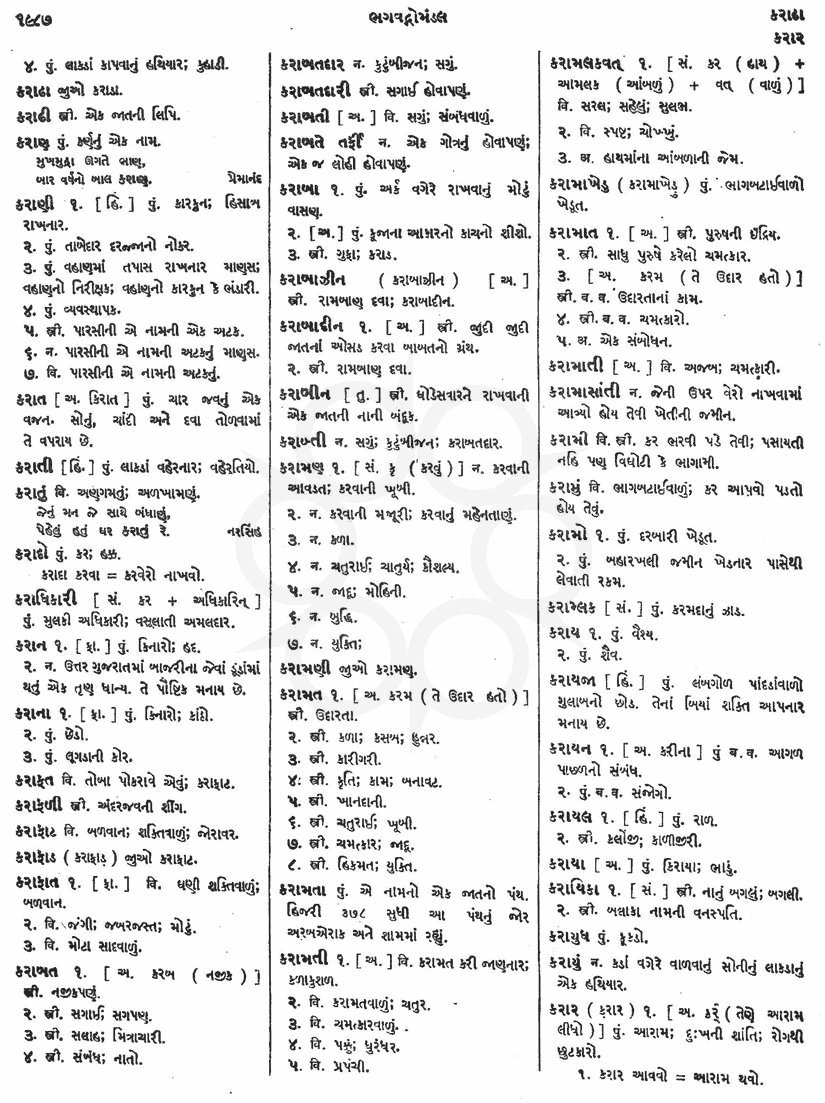 ૧૯૮૭
ભગવદ્ગોમંડલ
કરાઠા
કરાર
૪. પું. લાકડાં કાપવાનું હથિયાર; કુહાડી.
કરાઠા જુઓ કરાડા.
કરાઠી સ્ત્રી. એક જાતની લિપિ.
કરાણ પું. કર્ણનું એક નામ.
મુખમુદ્રા ઊગતે ભાણ,
બાર વર્ષનો બાલ કરાણુ. પ્રેમાનંદ
કરાણી ૧. [ હિં. ] પું. કારકુન; હિસાબ
રાખનાર.
૨. પું. તાબેદાર દરજ્જાનો નોકર.
૩. પું. વહાણમાં તપાસ રાખનાર માણસ;
વહાણનો નિરીક્ષક; વહાણનો કારકુન કે ભંડારી.
૪. પું. વ્યવસ્થાપક.
૫. સ્ત્રી. પારસીની એ નામની એક અટક.
૬. ન. પારસીની એ નામની અટકનું માણસ.
૭. વિ. પારસીની એ નામની અટકનું.
કરાત [ અ. કિરાત ] પું. ચાર જવનું એક
વજન. સોનું, ચાંદી અને દવા તોળવામાં
તે વપરાય છે.
કરાતી [ હિં. ] પું. લાકડાં વહેરનાર; વહેરતિયો.
કરાતું વિ. અણગમતું; અળખામણું.
જેનું મન જે સાથે બંધાણું,
પેહેલું હતું ઘર કરાતું રે. નરસિંહ
કરાદો પું. કર; હક્ક.
કરાદા કરવા = કરવેરો નાખવો.
કરાધિકારી [ સં. કર + અધિકારિન્ ]
પું. મુલકી અધિકારી; વસૂલાતી અમલદાર.
કરાન ૧. [ ફા. ] પું. કિનારો; હદ.
૨. ન. ઉત્તર ગુજરાતમાં બાજરીના જેવાં ડૂંડાંમાં
થતું એક તૃણ ધાન્ય. તે પૌષ્ટિક મનાય છે.
કરાના ૧. [ ફા. ] પું. કિનારો; કાંઠો.
૨. પું. છેડો.
૩. પું. લૂગડાની કોર.
કરાફત વિ. તોબા પોકરાવે એવું; કરાફાટ.
કરાફળી સ્ત્રી. અંદરજવની શીંગ.
કરાફાટ વિ. બળવાન; શક્તિવાળું; જોરાવર.
કરાફાડ ( કરાફાડ઼ ) જુઓ કરાફાટ.
કરાફાત ૧. [ ફા. ] વિ. ઘણી શક્તિવાળું;
બળવાન.
૨. વિ. જંગી; જબરજસ્ત; મોટું.
૩. વિ. મોટા સાદવાળું.
કરાબત ૧. [ અ. કરબ ( નજીક ) ]
સ્ત્રી. નજીકપણું.
૨. સ્ત્રી. સગાઈ; સગપણ.
૩. સ્ત્રી. સલાહ; મિત્રાચારી.
૪. સ્ત્રી. સંબંધ; નાતો.
કરાબતદાર ન. કુટુંબીજન; સગું.
કરાબતદારી સ્ત્રી. સગાઈ હોવાપણું.
કરાબતી [ અ. ] વિ. સગું; સંબંધવાળું.
કરાબતે તર્ફી ન. એક ગોત્રનું હોવાપણું;
એક જ લોહી હોવાપણું.
કરાબા ૧. પું. અર્ક વગેરે રાખવાનું મોટું
વાસણ.
૨. [ અ. ] પું. કૂજાના આકારનો કાચનો શીશો.
૩. સ્ત્રી. ગુફા; કરાડ.
કરાબાઝીન ( કરાબાઝીન ) [ અ. ]
સ્ત્રી. રામબાણ દવા; કરાબાદીન.
કરાબાદીન ૧. [ અ. ] સ્ત્રી. જુદી જુદી
જાતનાં ઓસડ કરવા બાબતનો ગ્રંથ.
૨. સ્ત્રી. રામબાણ દવા.
કરાબીન [ તુ. ] સ્ત્રી. ઘોડેસવારને રાખવાની
એક જાતની નાની બંદૂક.
કરાબ્તી ન. સગું; કુટુંબીજન; કરાબતદાર.
કરામણ ૧. [ સં. કૃ ( કરવું ) ] ન. કરવાની
આવડત; કરવાની ખૂબી.
૨. ન. કરવાની મજૂરી; કરવાનું મહેનતાણું.
૩. ન. કળા.
૪. ન. ચતુરાઈ; ચાતુર્ય; કૌશલ્ય.
૫. ન. જાદુ; મોહિની.
૬. ન. બુદ્ધિ.
૭. ન. યુક્તિ;
કરામણી જુઓ કરામણ.
કરામત ૧. [ અ. કરમ ( તે ઉદાર હતો ) ]
સ્ત્રી. ઉદારતા.
૨. સ્ત્રી. કળા; કસબ; હુન્નર.
૩. સ્ત્રી. કારીગરી.
૪. સ્ત્રી. કૃતિ; કામ; બનાવટ.
૫. સ્ત્રી. ખાનદાની.
૬. સ્ત્રી. ચતુરાઈ; ખૂબી.
૭. સ્ત્રી. ચમત્કાર; જાદૂ.
૮. સ્ત્રી. હિકમત; યુક્તિ.
કરામતા પું. એ નામનો એક જાતનો પંથ.
હિજરી ૩૭૮ સુધી આ પંથનું જોર
અરબએરાક અને શામમાં રહ્યું.
કરામતી ૧. [ અ. ] વિ. કરામત કરી જાણનાર;
કળાકુશળ.
૨. વિ. કરામતવાળું; ચતુર.
૩. વિ. ચમત્કારવાળું.
૪. વિ. પક્કું; ધુરંધર.
૫. વિ. પ્રપંચી.
કરામલકવત્ ૧. [ સં. કર ( હાથ ) +
આમલક ( આંબળું ) + વત્ ( વાળું ) ]
વિ. સરલ; સહેલું; સુલભ.
૨. વિ. સ્પષ્ટ; ચોખ્ખું.
૩. અ. હાથમાંના આંબળાની જેમ.
કરામાખેડુ ( કરામાખેડ઼ુ ) પું. ભાગબટાઈવાળો
ખેડૂત.
કરામાત ૧. [ અ. ] સ્ત્રી. પુરુષની ઇંદ્રિય.
૨. સ્ત્રી. સાધુ પુરુષે કરેલો ચમત્કાર.
૩. [ અ. કરમ ( તે ઉદાર હતો ) ]
સ્ત્રી. બ. વ. ઉદારતાનાં કામ.
૪. સ્ત્રી. બ. વ. ચમત્કારો.
૫. અ. એક સંબોધન.
કરામાતી [ અ. ] વિ. અજબ; ચમત્કારી.
કરામાસાંતી ન. જેની ઉપર વેરો નાખવામાં
આવ્યો હોય તેવી ખેતીની જમીન.
કરામી વિ. સ્ત્રી. કર ભરવી પડે તેવી; પસાયતી
નહિ પણ વિઘોટી કે ભાગામી.
કરામું વિ. ભાગબટાઈવાળું; કર આપવો પડતો
હોય તેવું.
કરામો ૧. પું. દરબારી ખેડૂત.
૨. પું. બહારખલી જમીન ખેડનાર પાસેથી
લેવાતી રકમ.
કરામ્લક [ સં. ] પું. કરમદાનું ઝાડ.
કરાય ૧. પું. વૈશ્ય.
૨. પું. શૈવ.
કરાયજા [ હિં. ] પું. લંબગોળ પાંદડાંવાળો
ગુલાબનો છોડ. તેનાં બિયાં શક્તિ આપનાર
મનાય છે.
કરાયન ૧. [ અ. કરીના ] પું બ. વ. આગળ
પાછળનો સંબંધ.
૨. પું. બ. વ. સંજોગો.
કરાયલ ૧. [ હિં. ] પું. રાળ.
૨. સ્ત્રી. કલોંજી; કાળીજીરી.
કરાયા [ અ. ] પું. કિરાયા; ભાડું.
કરાયિકા ૧. [ સં. ] સ્ત્રી. નાનું બગલું; બગલી.
૨. સ્ત્રી. બલાકા નામની વનસ્પતિ.
કરાયુધ પું. કૂકડો.
કરાયું ન. કડાં વગેરે વાળવાનું સોનીનું લાકડાનું
એક હથિયાર.
કરાર ( ક઼રાર ) ૧. [ અ. કર્ર્ ( તેણે આરામ
લીધો ) ] પું. આરામ; દુઃખની શાંતિ; રોગથી
છુટકારો.
૧. કરાર આવવો = આરામ થવો.